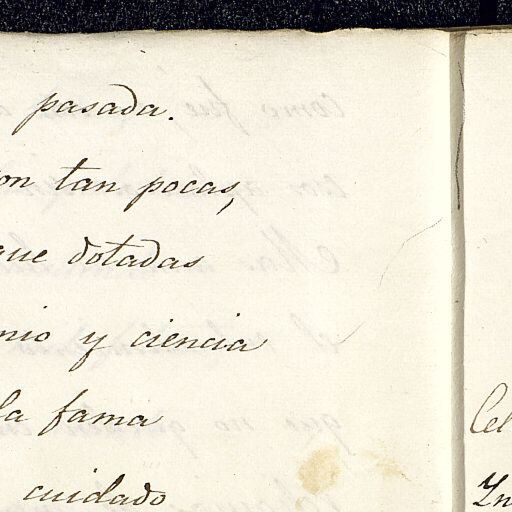 pasada.
on tan pocas,
que dotadas
nio y ciencia
la fama
cuidado
Cel
In